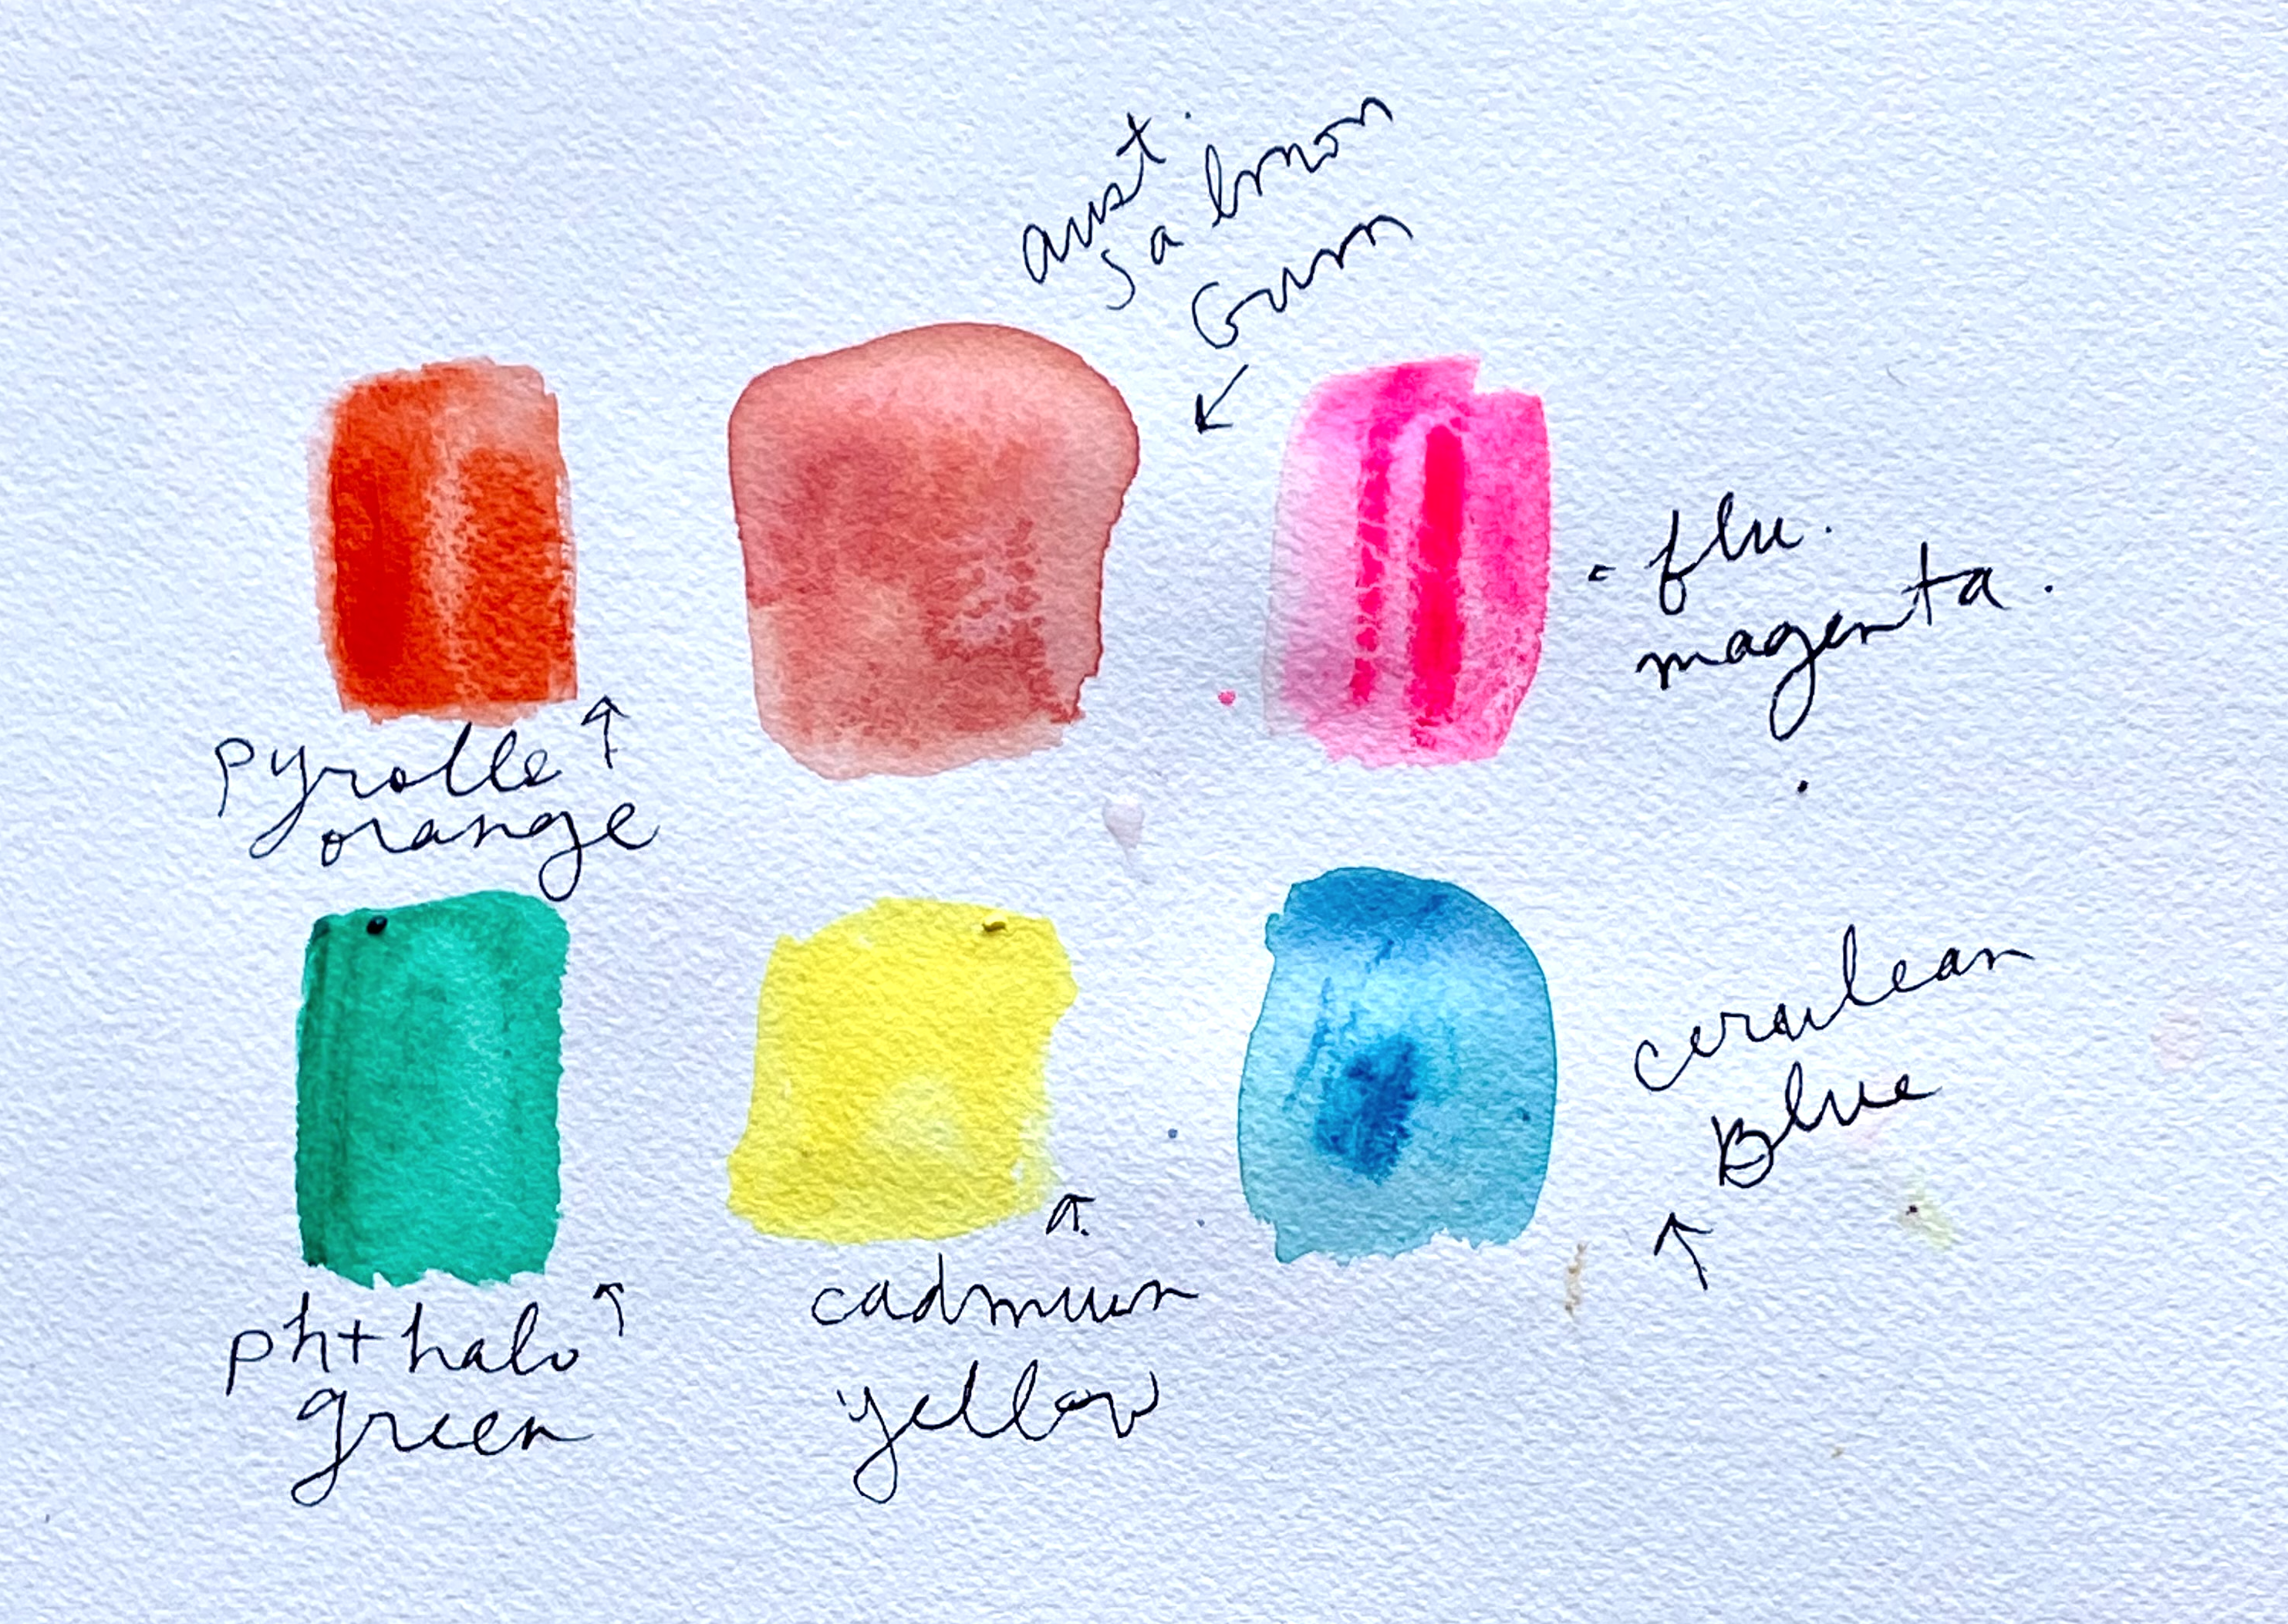 aust.
salmon
Gum
flu.
magenta.
pyrolle
orange
cerulean
Blue
phthalo
green
cadmium
yellow